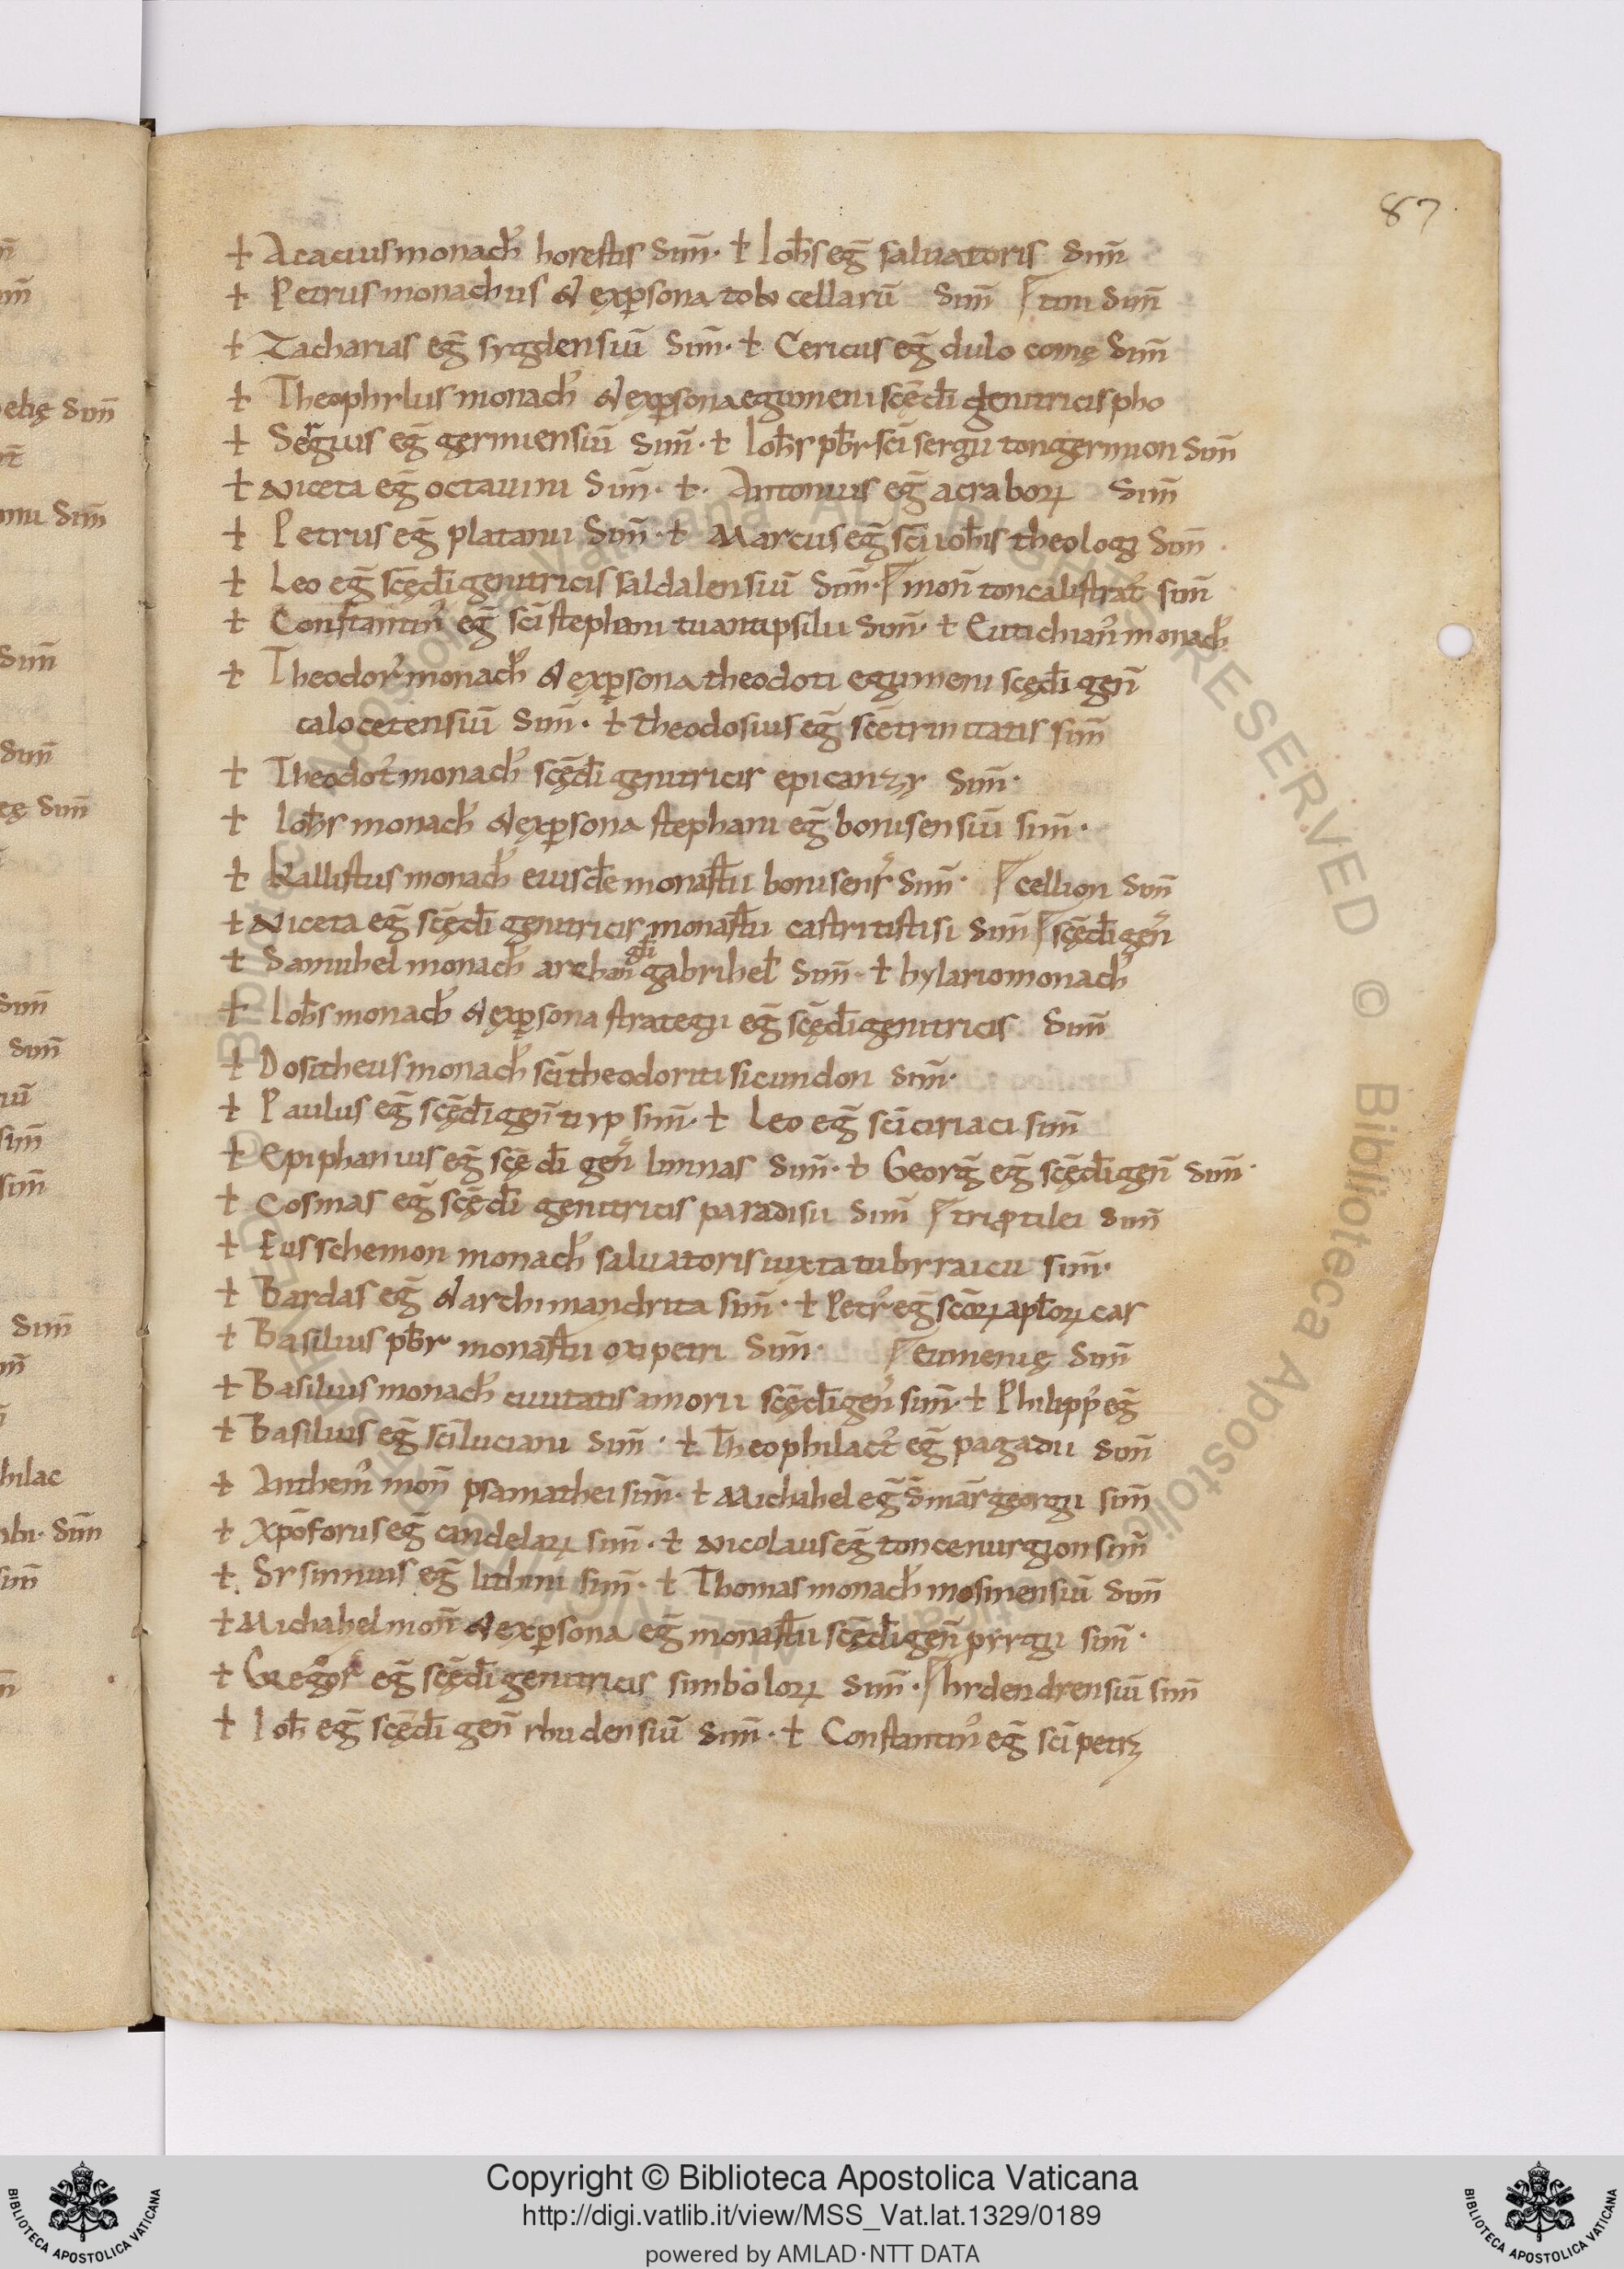 87
† Acacius monach̄ horestis sim̄. † Ioh̄s eḡ saluatoris sim̄
† Petrus monachus & exp̱sona tobi cellarū sim̄ tini sim̄
† Zacharias eḡ sygdensiū sim̄. † Cericus eḡ dulo comę sim̄
† Theophylus monach̄ & exp̱sona egumeni scę̄ dī genitricis pho
† Sergius eḡ germiensiū sim̄. † Ioh̄s pb̄r scī sergii tongermion sim̄
† Niceta eḡ octauini sim̄. †. Antonius eḡ acraboꝝ sim̄
† Petrus eḡ platanii sim̄. † Marcus eḡ scī ioh̄is theologi sim̄
† Leo eḡ scę̄ dī genitricis saldalensiū sim̄. mon̄ toncalistrat᾽ sim̄
† Constantin᾽ eḡ scī stephani tuantipsilu sim̄. † Eutichian᾽ monach̄
† Theodor᾽ monach̄ & exp̱sona theodoti egumeni scę dī gen̄
calocetensiū sim̄. † theodosius eḡ scē trinitatis sim̄
† Theodor᾽ monach̄ scę̄ dī genitricis sim̄.
† Ioh̄s monach̄ & exp̱sona stephani eḡ bonisensiū sim̄.
† Kallistus monach̄ eiusdē monast̄ii bonisens᾽ sim̄. cellion sim̄
† Niceta eḡ scę̄ dī genitricis monast̄ii castritistisi sim̄ scę̄ dī gen̄
† Samuhel monach̄ archangeli gabrihel᾽ sim̄. † hylario monach̄
† Ioh̄s monach̄ & exp̱sona strategii eḡ scę̄ dī genitricis sim̄
† Dositheus monach̄ scī theodori tisicundon sim̄.
† Paulus eḡ scę̄ dī gen̄ tiyp sim̄. † Leo eḡ scī ciriaci sim̄
† Epiphanius eḡ scę dī gen̄ limnas sim̄. † Georḡ eḡ scę̄ dī gen̄ sim̄.
† Cosmas eḡ scę̄ dī genitricis paradisii sim̄ triptilei sim̄
† Eusschemon monach̄ saluatoris iuxta tubyraicu sim̄.
† Bardas eḡ & archimandrita sim̄. † Petr᾽ eḡ scōꝝ apl̄oꝝ car
† Basilius pb̄r monast̄ii oxipetri sim̄. eumenię sim̄
† Basilius monach̄ ciuitatis amorii scę̄ dī gen̄ sim̄. † Philipp᾽ eḡ
† Basilius eḡ scī luciani sim̄. † Theophilact᾽ eḡ pagadii sim̄
† Anthem᾽ mon̄ psamathei sim̄. † Michahel eḡ s̄ mar̄ georgii sim̄
† Xpōforus eḡ candelaꝝ sim̄. † Nicolaus eḡ toncenurgion sim̄
† Sysinnius eḡ lithini sim̄. † Thomas monach̄ mosinensiū sim̄
† Michahel mon̄ & exp̱sona eḡ monast̄ii scę̄ dī gen̄ pyrgii sim̄.
† Gregor᾽ eḡ scę̄ dī genitricis simboloꝝ sim̄. hydendrensiū sim̄
† Ioh̄ eḡ scę̄ dī gen̄ rhudensiū sim̄. † Constantin᾽ eḡ scī petri
Copyright © Biblioteca Apostolica Vaticana
http://digi.vatlib.it/view/MSS_Vat.lat.1329/0189
powered by AMLAD·NTT DATA
BIBLIOTECA APOSTOLICA VATICANA
BIBLIOTECA APOSTOLICA VATICANA